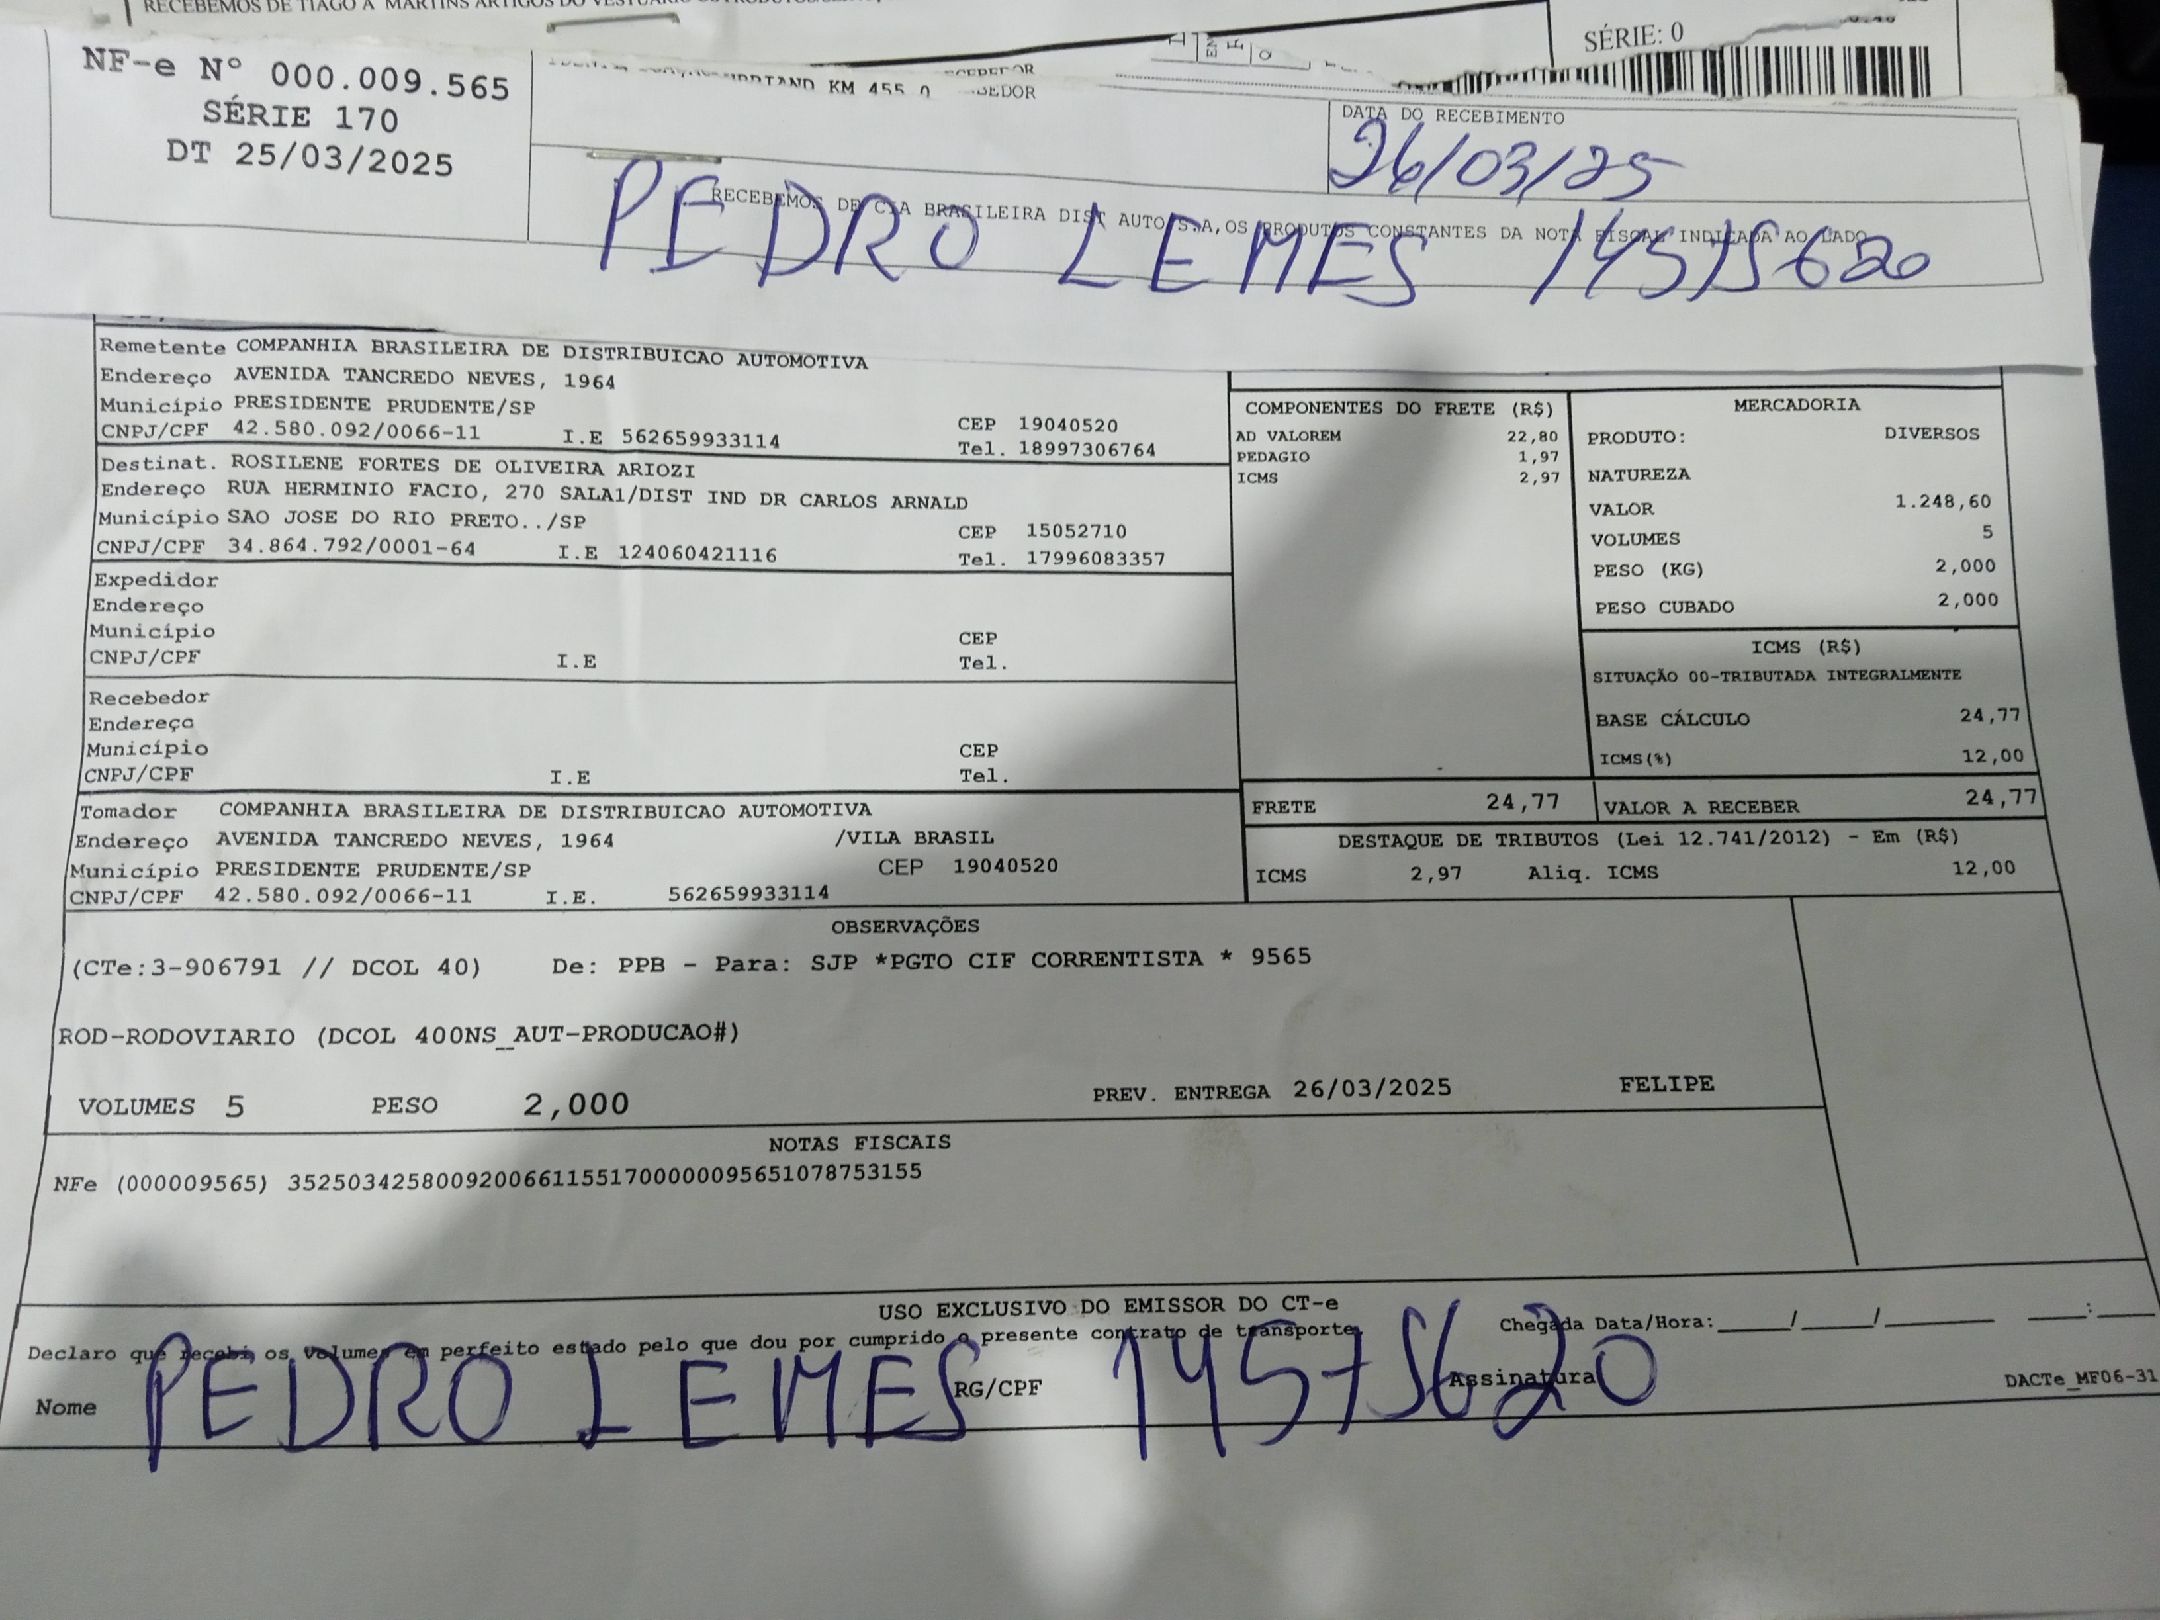 RECEBEMOS DE TIAGO A MARTINS ARTIGOS DO VESTUARIO
SÉRIE: 0
NF-e Nº 000.009.565
SÉRIE 170
DT 25/03/2025
KM 455
DATA DO RECEBIMENTO
26/03/25
RECEBEMOS DE CIA BRASILEIRA DIST AUTO S.A, OS PRODUTOS CONSTANTES DA NOTA FISCAL INDICADA AO LADO
PEDRO LEMES 14575620
Remetente COMPANHIA BRASILEIRA DE DISTRIBUICAO AUTOMOTIVA
Endereço AVENIDA TANCREDO NEVES, 1964
Município PRESIDENTE PRUDENTE/SP CEP 19040520
CNPJ/CPF 42.580.092/0066-11 I.E 562659933114 Tel. 18997306764
Destinat. ROSILENE FORTES DE OLIVEIRA ARIOZI
Endereço RUA HERMINIO FACIO, 270 SALA1/DIST IND DR CARLOS ARNALD
Município SAO JOSE DO RIO PRETO../SP CEP 15052710
CNPJ/CPF 34.864.792/0001-64 I.E 124060421116 Tel. 17996083357
Expedidor
Endereço
Município CEP
CNPJ/CPF I.E Tel.
Recebedor
Endereço
Município CEP
CNPJ/CPF I.E Tel.
Tomador COMPANHIA BRASILEIRA DE DISTRIBUICAO AUTOMOTIVA
Endereço AVENIDA TANCREDO NEVES, 1964 /VILA BRASIL
Município PRESIDENTE PRUDENTE/SP CEP 19040520
CNPJ/CPF 42.580.092/0066-11 I.E. 562659933114
COMPONENTES DO FRETE (R$)
AD VALOREM 22,80
PEDAGIO 1,97
ICMS 2,97
MERCADORIA
PRODUTO: DIVERSOS
NATUREZA
VALOR 1.248,60
VOLUMES 5
PESO (KG) 2,000
PESO CUBADO 2,000
ICMS (R$)
SITUAÇÃO 00-TRIBUTADA INTEGRALMENTE
BASE CÁLCULO 24,77
ICMS(%) 12,00
FRETE 24,77 VALOR A RECEBER 24,77
DESTAQUE DE TRIBUTOS (Lei 12.741/2012) - Em (R$)
ICMS 2,97 Aliq. ICMS 12,00
OBSERVAÇÕES
(CTe:3-906791 // DCOL 40) De: PPB - Para: SJP *PGTO CIF CORRENTISTA * 9565
ROD-RODOVIARIO (DCOL 400NS_AUT-PRODUCAO#)
VOLUMES 5 PESO 2,000 PREV. ENTREGA 26/03/2025 FELIPE
NOTAS FISCAIS
NFe (000009565) 35250342580092006611551700000095651078753155
USO EXCLUSIVO DO EMISSOR DO CT-e
Declaro que recebi os volumes em perfeito estado pelo que dou por cumprido o presente contrato de transporte. Chegada Data/Hora:____/____/______ ___:___
Nome PEDRO LEMES RG/CPF 14575620 Assinatura DACTe_MF06-31